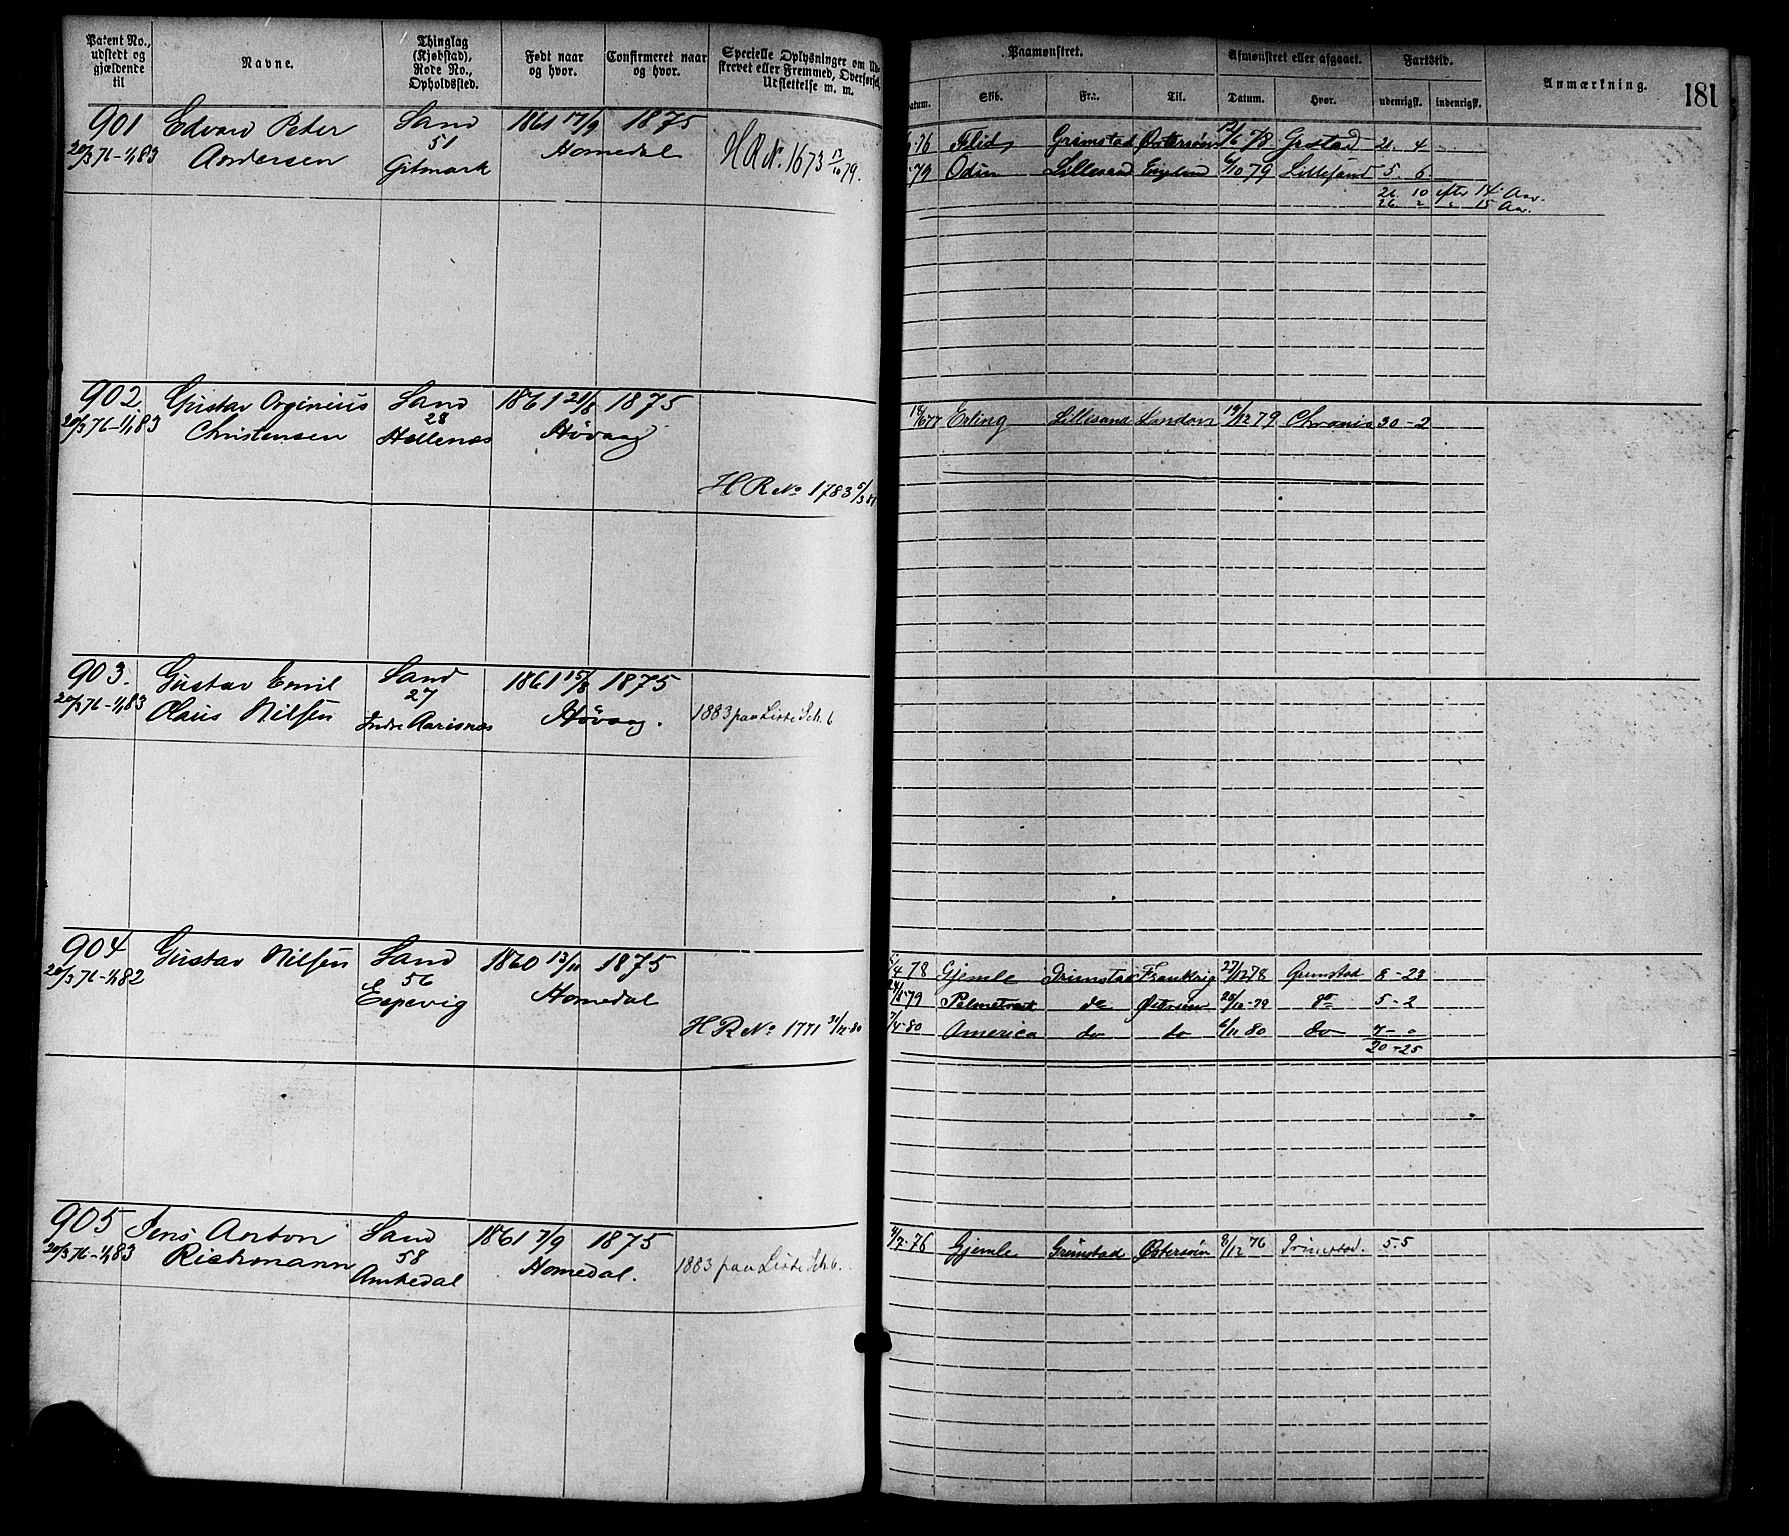 Patent No., udstedt og gjældende til
Navne.
Thinglag (Kjøbstad), Rode No., Opholdssted.
Født naar og hvor.
Confirmeret naar og hvor.
Specielle Oplysninger om
skrevet eller Fremmed, Overførsel,
Udslettelse m. m.
Paamønstret.
Afmønstret eller afgaaet.
Fartstid.
Anmærkning.
181
Datum. Skib. Fra. Til. Datum. Hvor. udenrigsk. indenrigsk.
901 Edvard Peter Sand 1861 17/9 1875
20/3 76-1/1 83 Andersen 51 Homedal
Gitmark
H R No. 1673 13/10 79.
76 Grimstad Østersøen 12/6 78 Grstad 21. 4
79 Odin Lillesand England 6/10 79 Lillesand 5. 6
26 10 efter 14 Aar.
26 2 " 15 Aar.
902 Gustav Orginius Sand 1861 21/8 1875
20/3 76-1/1 83 Christensen 28 Høvaag
Hellenæs
H R No 1783 5/3 81
18/6 77 Erling Lillesand London 19/12 79 20-2
903. Gustav Emil Sand 1861 15/8 1875
20/3 76-1/1 83 Olaus Nilsen 27 Høvaag.
Indre Aarisnæs
1883 paa Liste Sch. 6
904 Gustav Nilsen Sand 1860 13/11 1875
20/3 76-1/1 82 56 Homedal
Eepevig
H R No 1771 31/12 80
5/4 78 Gjemle Grimstad Frankrig 27/12 78 Grimstad 8-23
24/5 79 do Østersøen 28/10-79 do 5-2
7/4-80 America do do 6/11 80 do 7-0
20-25
905 Jens Anton Sand 1861 7/9 1875
20/3 76-1/1 83 Richmann 58 Homedal.
Amkedal
1883 paa Liste Sch. 6.
4/7-76 Gjemle Grimstad Østersøen 8/12 76 Grimstad. 5.5